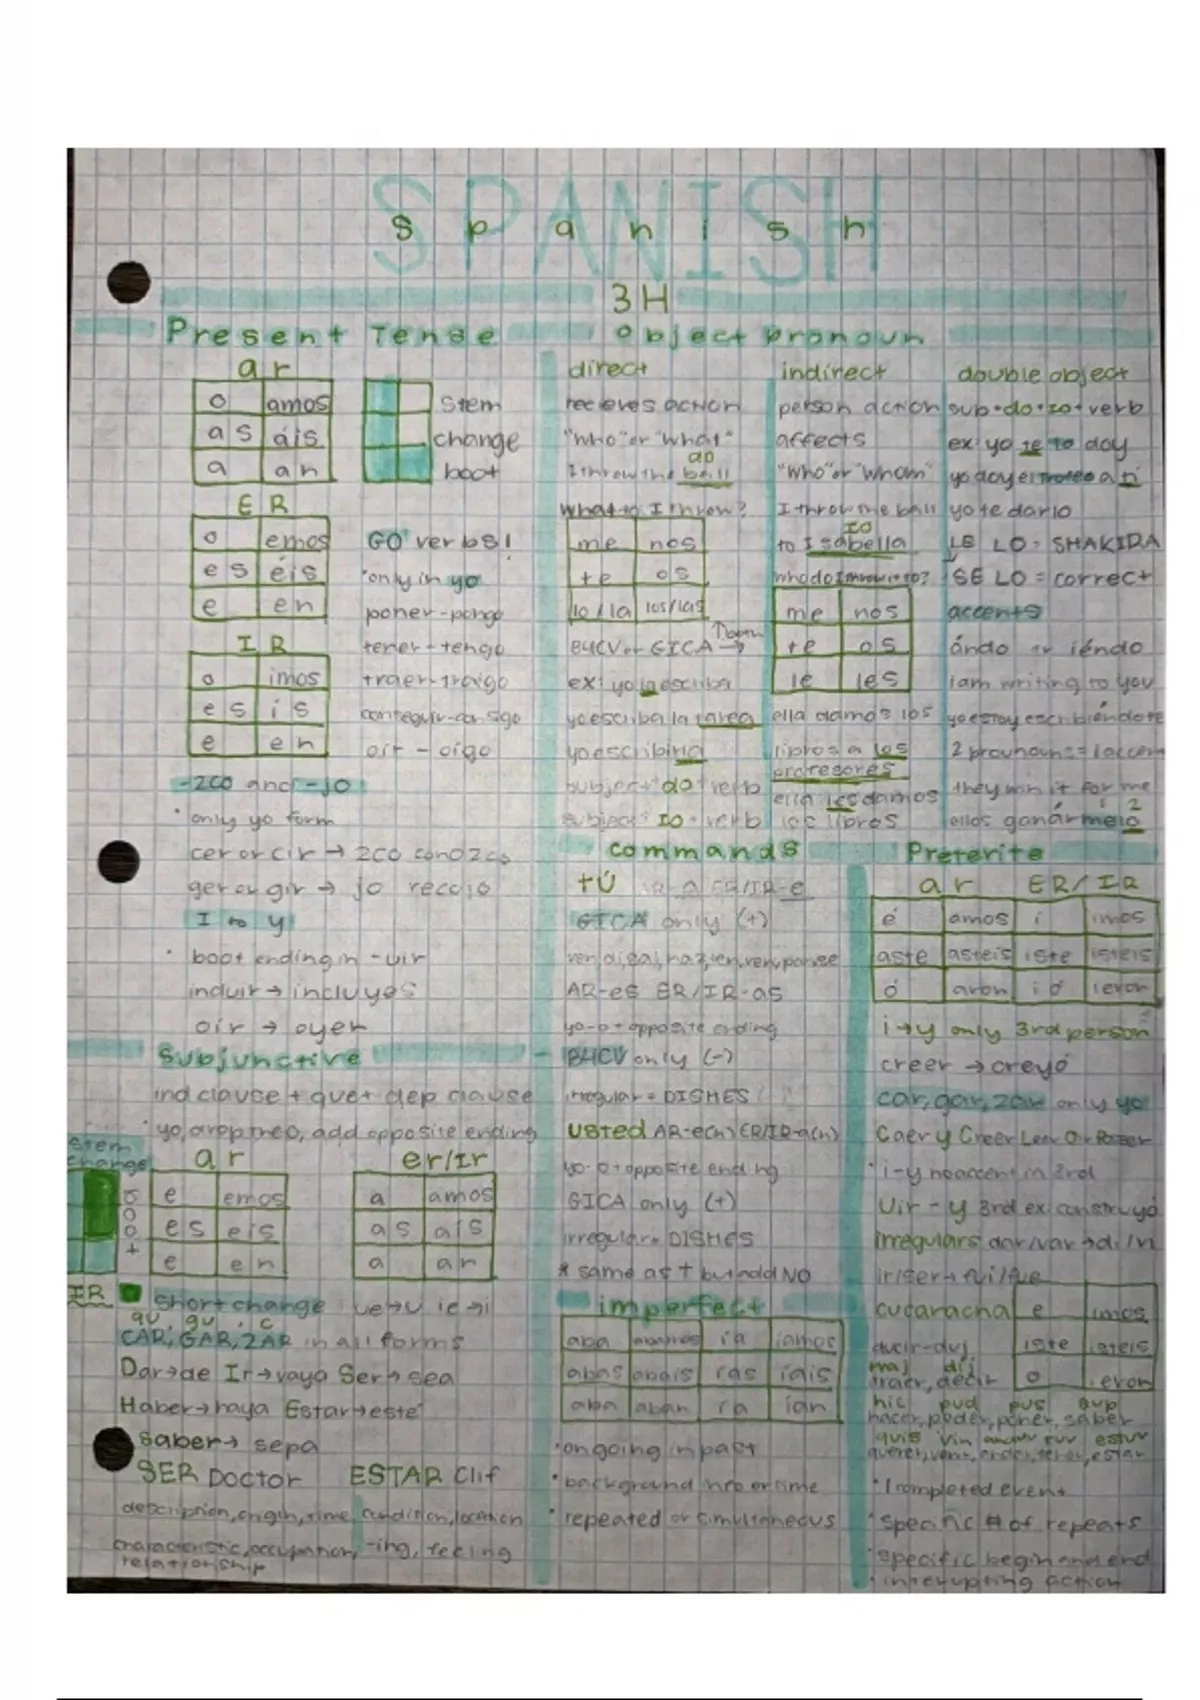 SPANISH
Spanish
3H
Present Tense
ar
o amos
as áis
a an
Stem
change
boot
ER
o emos
es éis
e en
IR
o imos
es ís
e en
GO verbs!
*only in yo
poner-pongo
tener-tengo
traer-traigo
oir - oigo
-zco and -jo
• only yo form
cer or cir → zco conozco
ger ou gir → jo recojo
I to y
• boot ending in -uir
incluir → incluyes
oir → oyer
Subjunctive
ind clause + que + dep clause
• yo, drop the o, add opposite ending
Stem
change
boot
IR
ar
e emos
es eis
e en
er/ir
a amos
as ais
a an
short change ue→u ie→i
qu, gu, c
CAR, GAR, ZAR in all forms
Dar→de Ir→vaya Ser→sea
Haber→haya Estar→esté
saber→ sepa
SER Doctor
description, origin, time,
characteristic, occupation,
relationship
ESTAR Clif
condition, location
-ing, feeling
Object pronoun
direct
recieves action
"who" or "what"
DO
I throw the ball
What do I throw?
me nos
te os
lo/la los/las
B4CV or GICA →
↑both
ex: yo la escriba
yo escriba la tarea
yo escribirla
subject + DO + verb
subject + IO + verb
indirect
person action
affects
"who" or "whom"
I throw the ball
IO
to Isabella
who do I throw it to?
me nos
te os
le les
ella damos los
libros a los
profesores
ella les damos
los libros
double object
sub+do+io+verb
ex: yo te lo doy
yo te dario
LE LO = SHAKIRA
SE LO = correct
accents
ándo or iéndo
I am writing to you
yo estoy escribiéndote
2 prounouns = 1 accent
they win it for me
1 2
ellos ganármelo
Commands
TÚ
GICA only (+)
AR-es ER/IR-as
yo-o+opposite ending
B4CV only (-)
irregular = DISHES
Usted AR-e(n) ER/IR-a(n)
yo-o+opposite ending
GICA only (+)
irregular = DISHES
* same as + but add NO
imperfect
aba abamos ía íamos
abas abais ías íais
aba aban ía ían
• ongoing in past
• background info or time
• repeated or simultaneous
Preterite
ar ER/IR
é amos í imos
aste asteis iste isteis
ó aron ió ieron
i→y only 3rd person
creer → creyó
car, gar, zar only yo
Caer y Creer Leer Oir Poseer
* i-y no accent in 3rd
Uir - y 3rd ex: construyó
irregulars dar/ver→di/vi
ir/ser→fui/fue
cucaracha
e imos
iste isteis
o ieron
ducir-duj
traj dij
traer, decir
hic pud pus sup
hacer, poder, poner, saber
quis vin anduv tuv estuv
querer, venir, andar, tener, estar
• 1 completed event
• specific # of repeats
• specific begin and end
• interrupting action